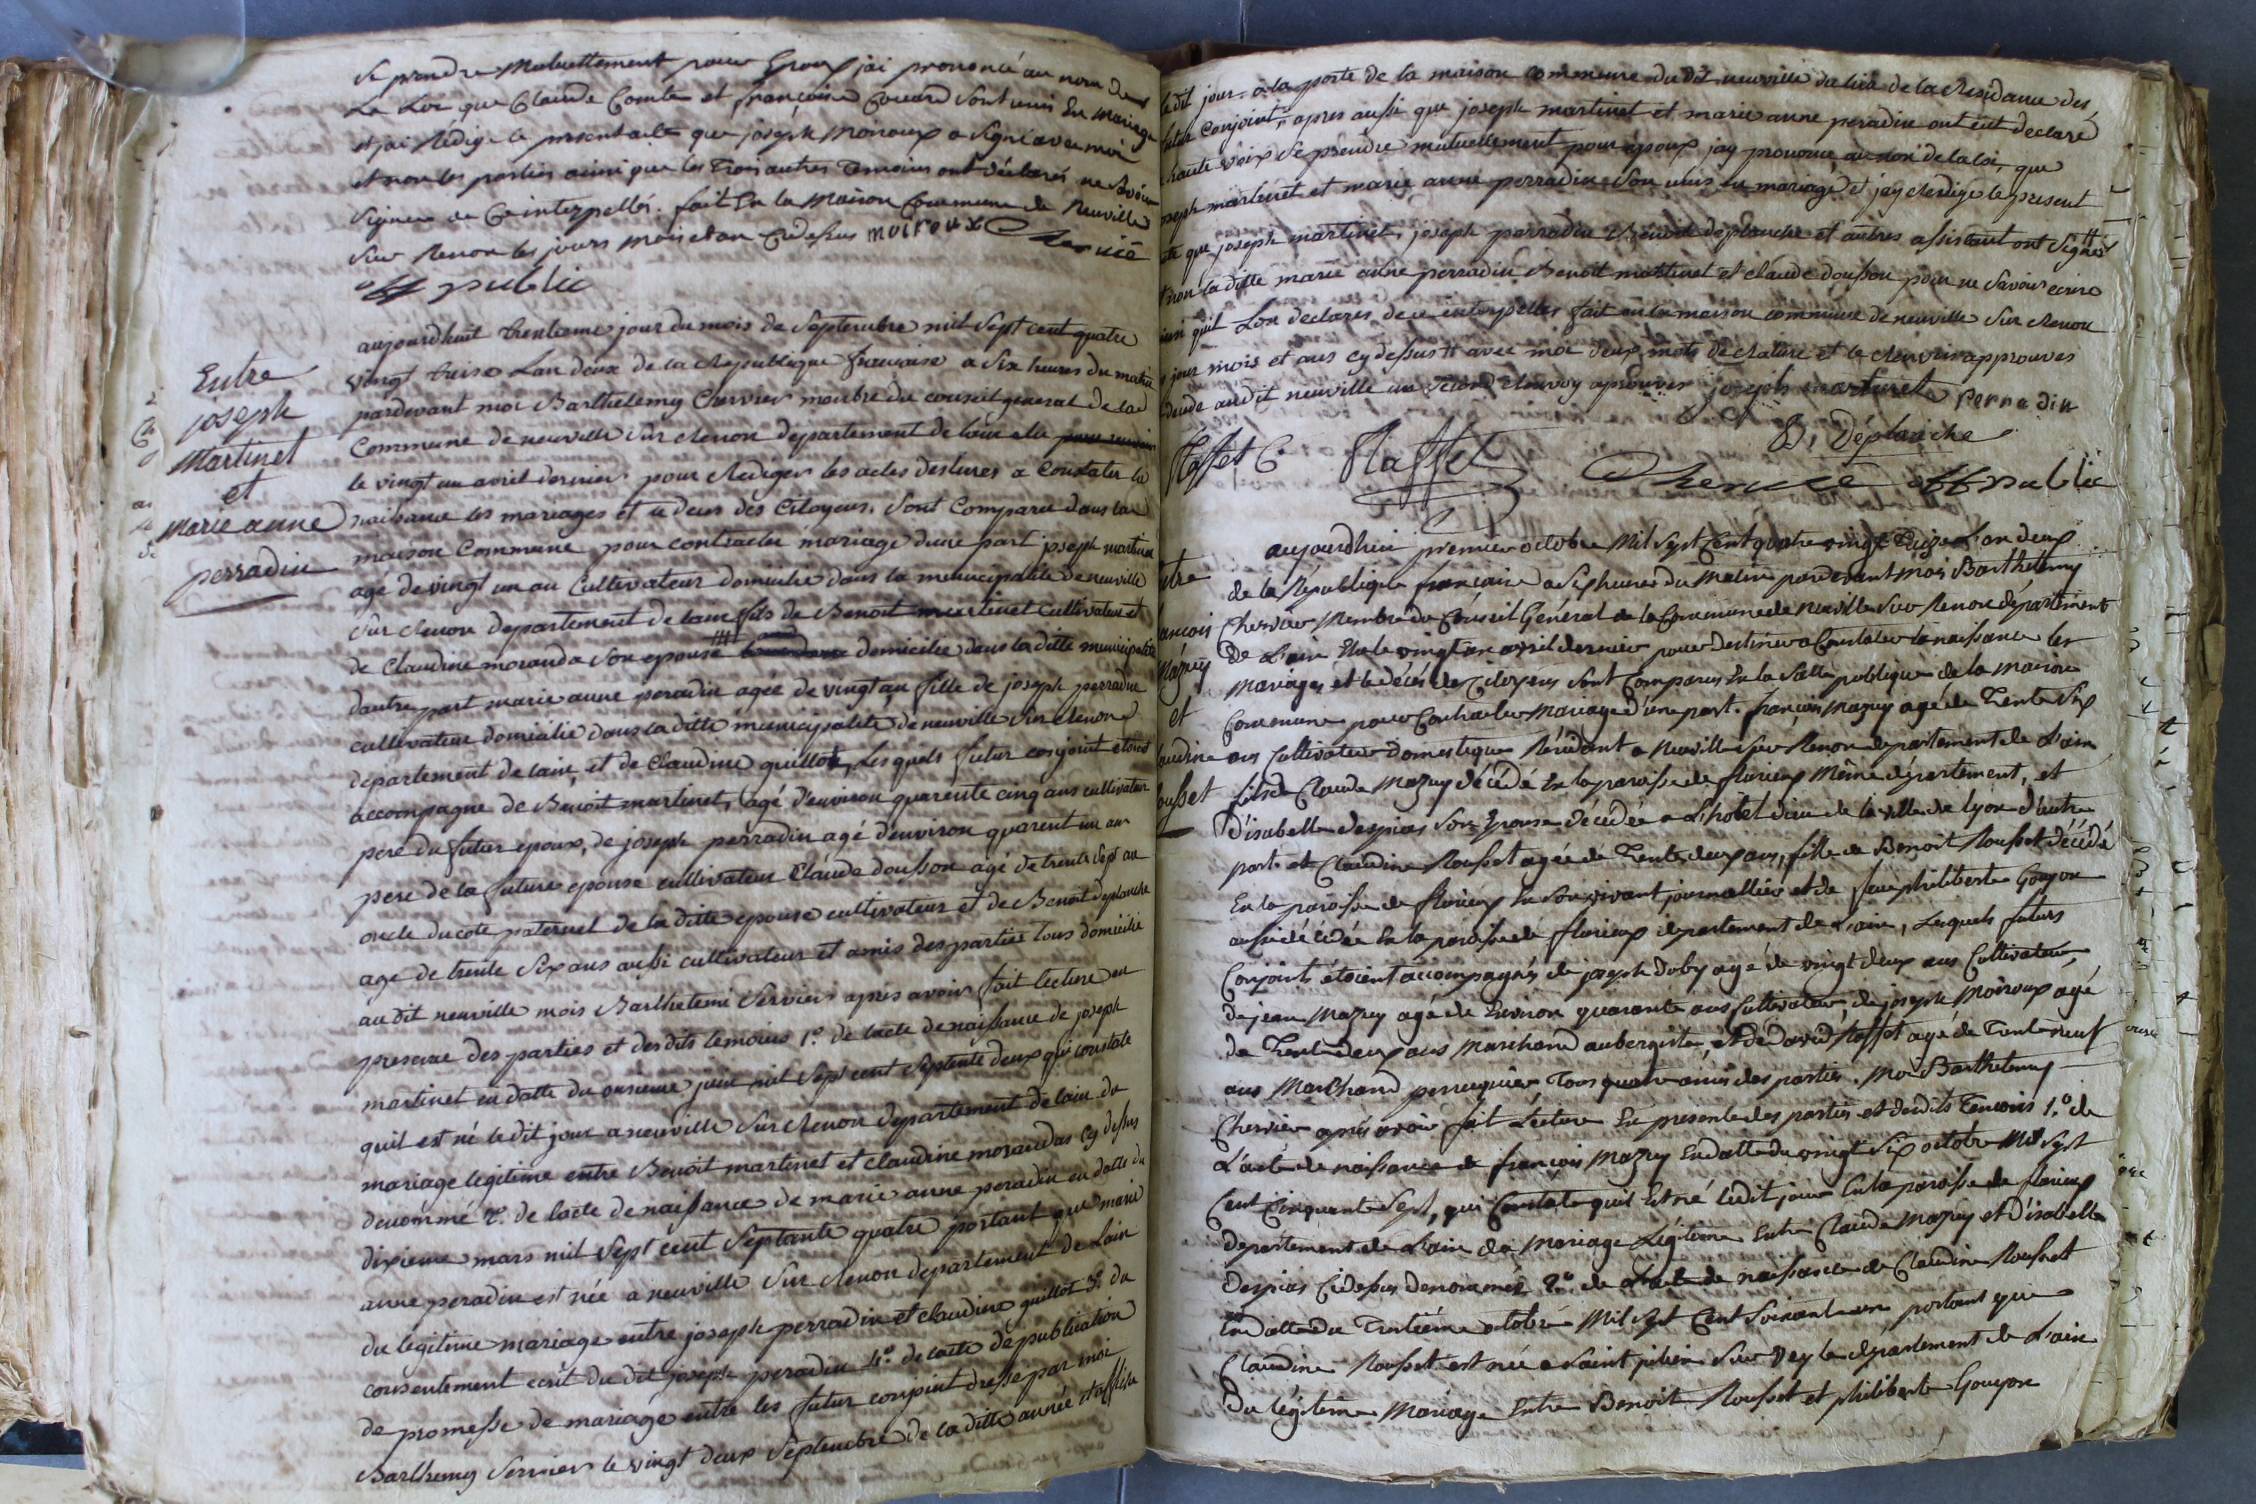 se prendre Mutuellement pour Epoux jai prononcé au nom de
La Loi que Claude Comte et françoise Couard Sont unis En mariage
et jai Rédigé le present acte que joseph Moiroux a Signé avec moi
et non les parties ainsi que les Trois autres Temoins ont Déclarés ne Savoir
Signer de Ce interpellés. fait En la Maison Commune de Neuville
Sur Renon les jours mois et an Cydessus moiroux
off public
Entre
joseph
Martinet
et
Marie anne
perradin
aujourdhuit trentieme jour du mois de Septembre mil Sept cent quatre
vingt treise Lan deux de la Republique francaise a Six heures du matin
pardevant moi Barthelemy Chervier membre du conseil general de la
Commune de neuville Sur Renon departement de lain elu
le vingt un avril dernier pour Rediger les actes destinés a Constater la
naissance les mariages et deces des Citoyens. Sont Comparu dans la
maison Commune pour contracter mariage d'une part joseph martinet
agé de vingt un an Cultivateur domicilie dans la municipalité de neuville
Sur Renon departement de lain fils de Benoit martinet Cultivateur et
de Claudine moranda Son epouse domicilie dans la ditte municipalité
dautre part marie anne peradin agée de vingt an fille de joseph perradin
cultivateur domicilié dans la ditte municipalité de neuville Sur Renon
departement de lain, et de Claudine quillot, Lesquels futur conjoint etoient
accompagne de Benoit martinet, agé d'environ quarente cinq ans cultivateur
pere du futur epoux, de joseph perradin agé d'environ quarent un an
pere de la future epouse cultivateur Claude doufson agé de trente Sept an
oncle du coté paternel de la ditte epouse cultivateur et de Benoit deplanche
agé de trente Six ans aussi cultivateur et amis des parties tous domicilié
au dit neuville mois Barthelemi Servier après avoir fait lecture en
presence des parties et desdits temoins 1°. de lacte de naissance de joseph
martinet en datte du onsieme juin mil Sept cent Septente deux qui constate
quil est né le dit jour a neuville Sur Renon departement de lain du
mariage legitime entre Benoit martinet et Claudine morandas Cy dessus
denommé 2°. de lacte de naissance de marie anne peradin en datte du
dixieme mars mil Sept cent Septante quatre portant que marie
anne peradin est née a neuville Sur Renon departement de Lain
du legitime mariage entre joseph perradin et Claudine quillot 3°. du
consentement ecrit du dit joseph peradin 4°. de lacte de publication
de promesse de mariage entre les futur conjoint dressé par moi
Barthemy Servier le vingt deux Septembre de la ditte année et affiché
ledit jour a la porte de la maison Commune du dit neuville du lieu de la Residance des
futur Conjoint, apres aussi que joseph martinet et marie anne peradin ont eut declaré
a haute voix Se prendre mutuellement pour epoux jay prononcé au nom de la loi, que
joseph martinet et marie anne perradin Son unis en mariage et jay Redigé le present
acte que joseph martinet, joseph perradin Benoit deplanche et autres assistant ont Signés
non la ditte marie anne perradin Benoit martinet et claude doufson pour ne Savoir ecrire
ainsi quil Lon declarés de ce interpelles fait en la maison commune de neuville Sur Renon
les jour mois et ans cy dessus avec moi deux mots de Rature et le Renvoi approuves
audit neuville un Second Renvoy aprouver joseph martinet Perradin
Raffet C. Raffet B, Déplanche
off public
entre
françois
Mazuy
et
Claudine
Rousset
aujourdhui premier octobre Mil Sept Cent quatre vingt Treize L'an Deux
de la République française a Sept heures du Matin pardevant Moi Barthelemy
Chervier Membre du Conseil Général de la Commune de Neuville Sur Renon département
de L'ain Elu le vingt un avril dernier pour Destinés a Constater la naissance les
Mariages et le décès des Citoyens Sont Comparus En la Salle publique de la Maison
Commune pour Contracter Mariage d'une part. françois Mazuy agé de Trente Six
ans Cultivateur Domestique Résident a Neuville Sur Renon departement de L'ain
fils de Claude Mazuy décédé En la paroisse de fleurieux Même département, et
d'isabelle despias Son Epouse décédée a L'hotel dieu de la ville de lyon d'autre
part et Claudine Rousset agée de Trente deux ans, fille de Benoit Rousset décédé
En la paroisse de fleurieux En Son vivant journallier et de feue philiberte Gonyon
aussi décédée En la paroisse de fleurieux département de L'ain, Lesquels futurs
Conjoints étoient accompagnés de joseph Duby agé de vingt deux ans Cultivateur,
de jean Mazuy agé de Environ quarante ans Cultivateur, de joseph Moiroux agé
de Trente deux ans Marchand aubergiste, et de david Raffet agé de Trente neuf
ans Marchand perruquier Tous quatre amis des parties. Moi Barthelemy
Chervier après avoir fait Lecture En presence des parties et desdits Temoins 1.° de
L'acte de naissance de françois Mazuy En datte du vingt Six octobre Mil Sept
Cent Cinquante Sept, qui Constate quil Est né ledit jour En la paroisse de fleurieux
departement de L'ain du Mariage Légitime Entre Claude Mazuy et d'isabelle
Despias Cidessus Denommés 2.° de L'acte de naissance de Claudine Rousset
En datte du Trentième octobre Mil Sept Cent Soixante un portant que
Claudine Rousset est née a Saint julien Sur Veyle département de L'ain
Du légitime Mariage Entre Benoit Rousset et philiberte Gouyon